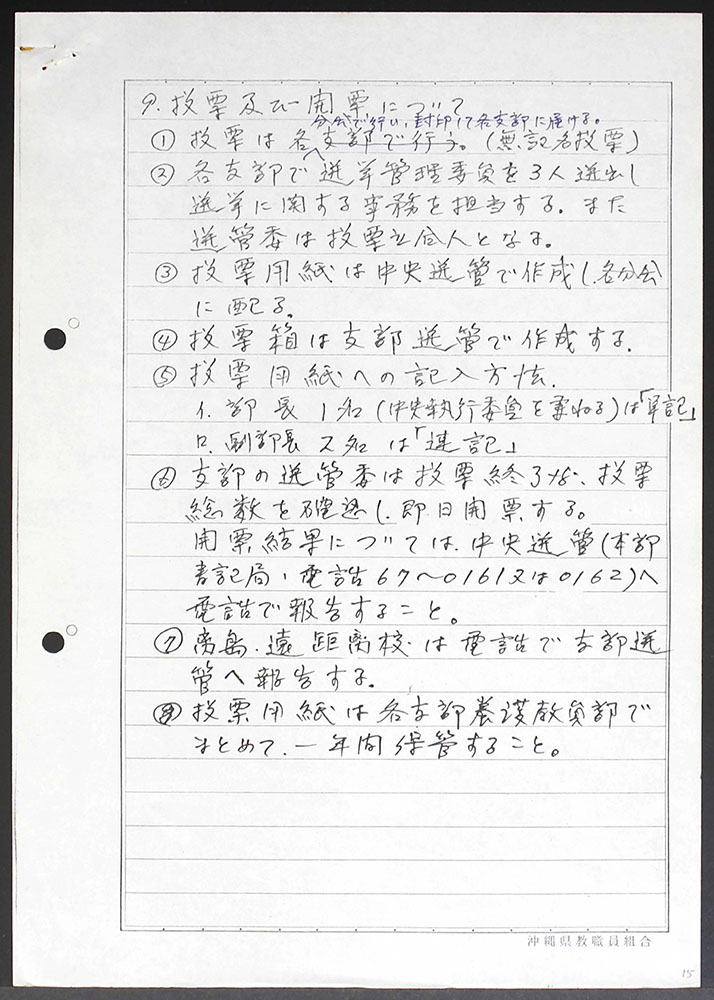 9. 投票及び開票について
分会で行い、封印して各支部に届ける。
① 投票は各支部で行う。(無記名投票)
② 各支部で選挙管理委員を3人選出し
選挙に関する事務を担当する。また
選管委は投票立合人となる。
③ 投票用紙は中央選管で作成し、各分会
に配る。
④ 投票箱は支部選管で作成する。
⑤ 投票用紙への記入方法.
イ. 部長1名(中央執行委員を兼ねる)は「単記」
ロ. 副部長2名は「連記」
⑥ 支部の選管委は投票終了後、投票
総数を確認し、即日開票する。
開票結果については、中央選管(本部
書記局、電話67〜0161又は0162)へ
電話で報告すること。
⑦ 离島.遠距离校は電話で支部選
管へ報告する。
⑧ 投票用紙は各支部養護教員部で
まとめて、一年間保管すること。
沖縄県教職員組合
15